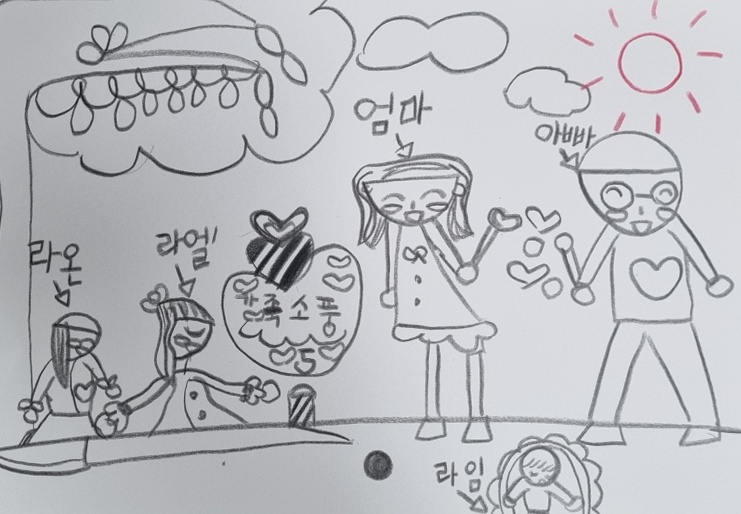 엄마
아빠
라온
라엘
가족소풍
라임